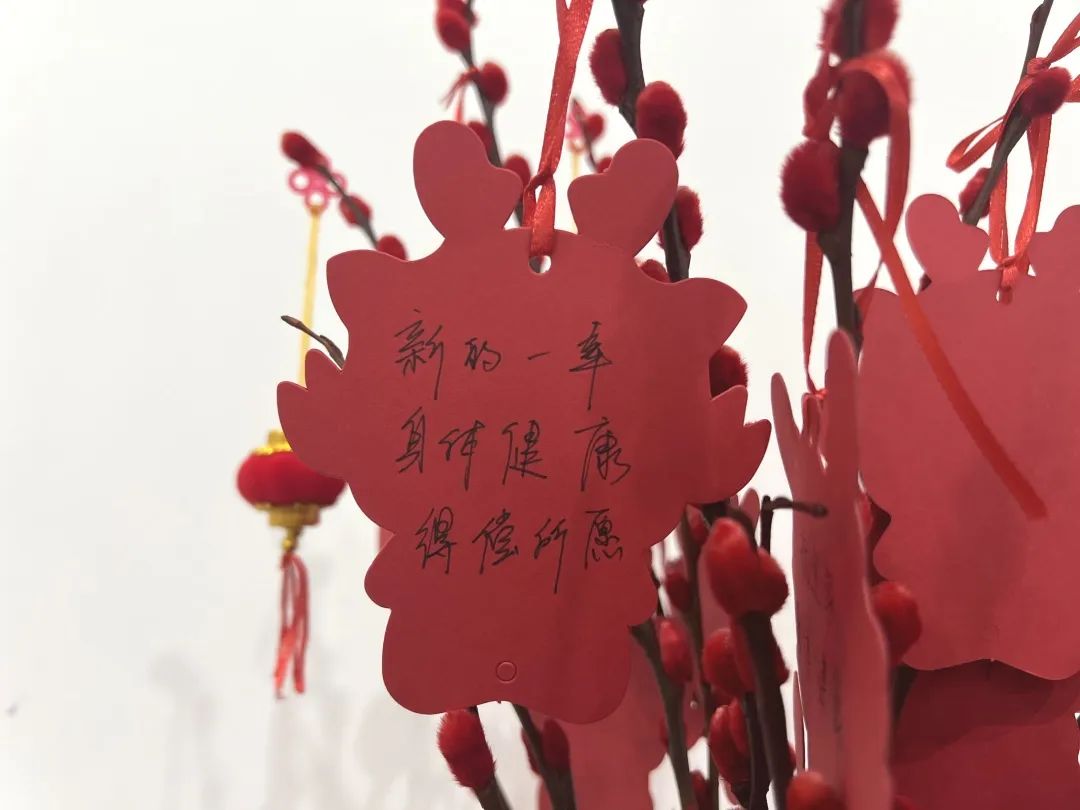 新的一年
身体健康
得偿所愿